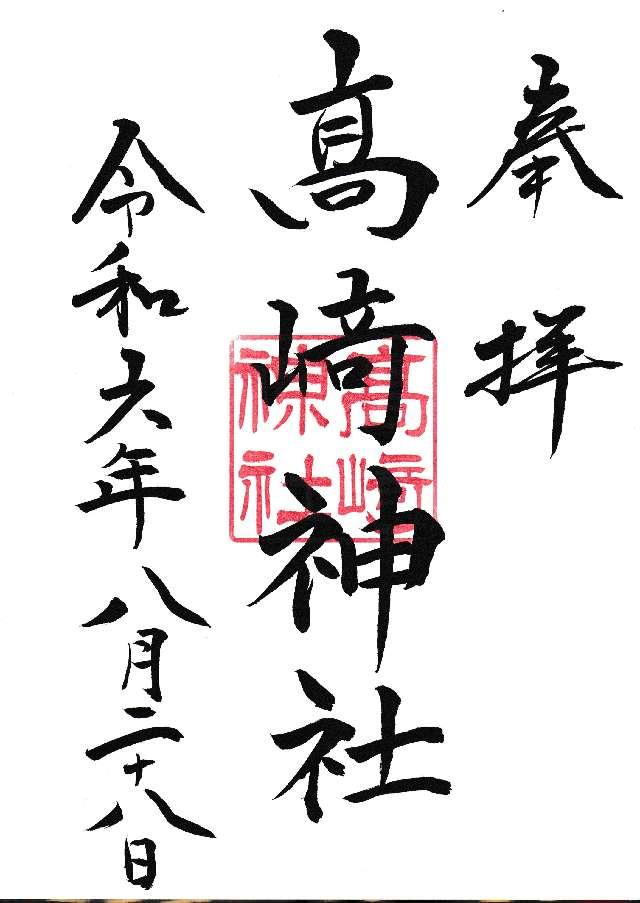 奉拝
髙﨑神社
髙﨑
神社
令和六年八月二十八日